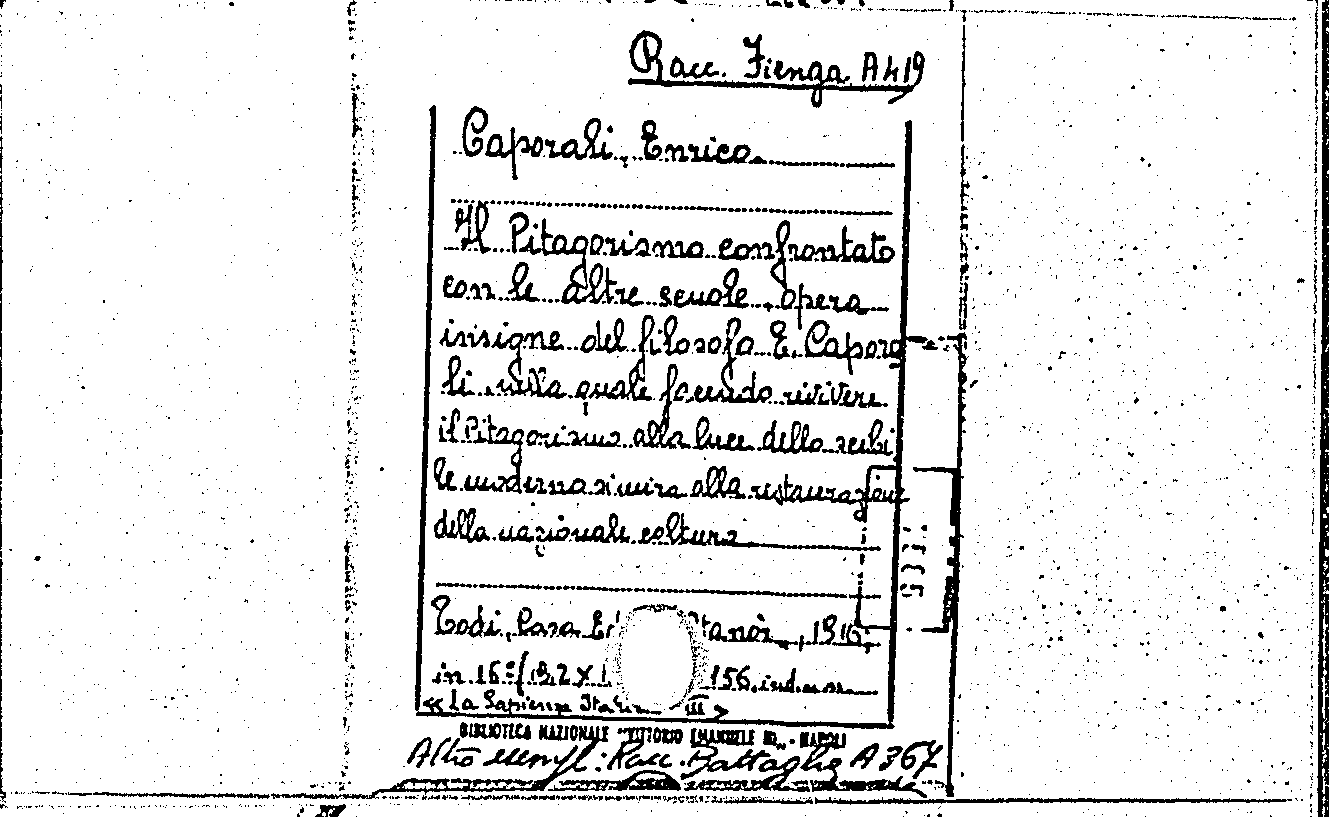 Racc. Fienga A 419
Caporali, Enrico.
Il Pitagorismo confrontato
con le altre scuole, opera
insigne del filosofo E. Capora
li, nella quale facendo rivivere
il Pitagorismo alla luce dello scibi
le moderno si mira alla restaurazione
della nazionale coltura
Todi, Casa Ed tanòr, 1916.
in 16° 156.
« La Sapienza Italica III »
BIBLIOTECA NAZIONALE "VITTORIO EMANUELE III" - NAPOLI
Altro esempl: Racc. Battaglia A 367